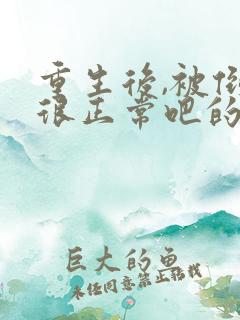 重生後,被倒
很正常吧的
巨大的鱼
未经同意禁止转载